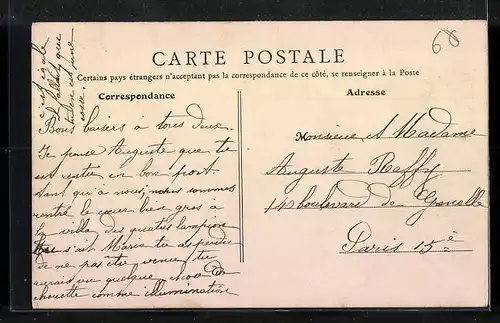 68
CARTE POSTALE
Certains pays étrangers n'acceptent pas la correspondance de ce côté, se renseigner à la Poste
Correspondance
Bons baisers à tous deux.
Je pense Auguste que tu
es rentré en bon port
tant qu'à nous, nous sommes
rentré le cœur bien gros à
la villa des quatres lampions
sait Maria tu as perdu
de ne pas être venu tu
aurais vu quelque chose de
chouette comme illumination
Adresse
Monsieur et Madame
Auguste Raffy
14 boulevard de Grenelle
Paris 15è